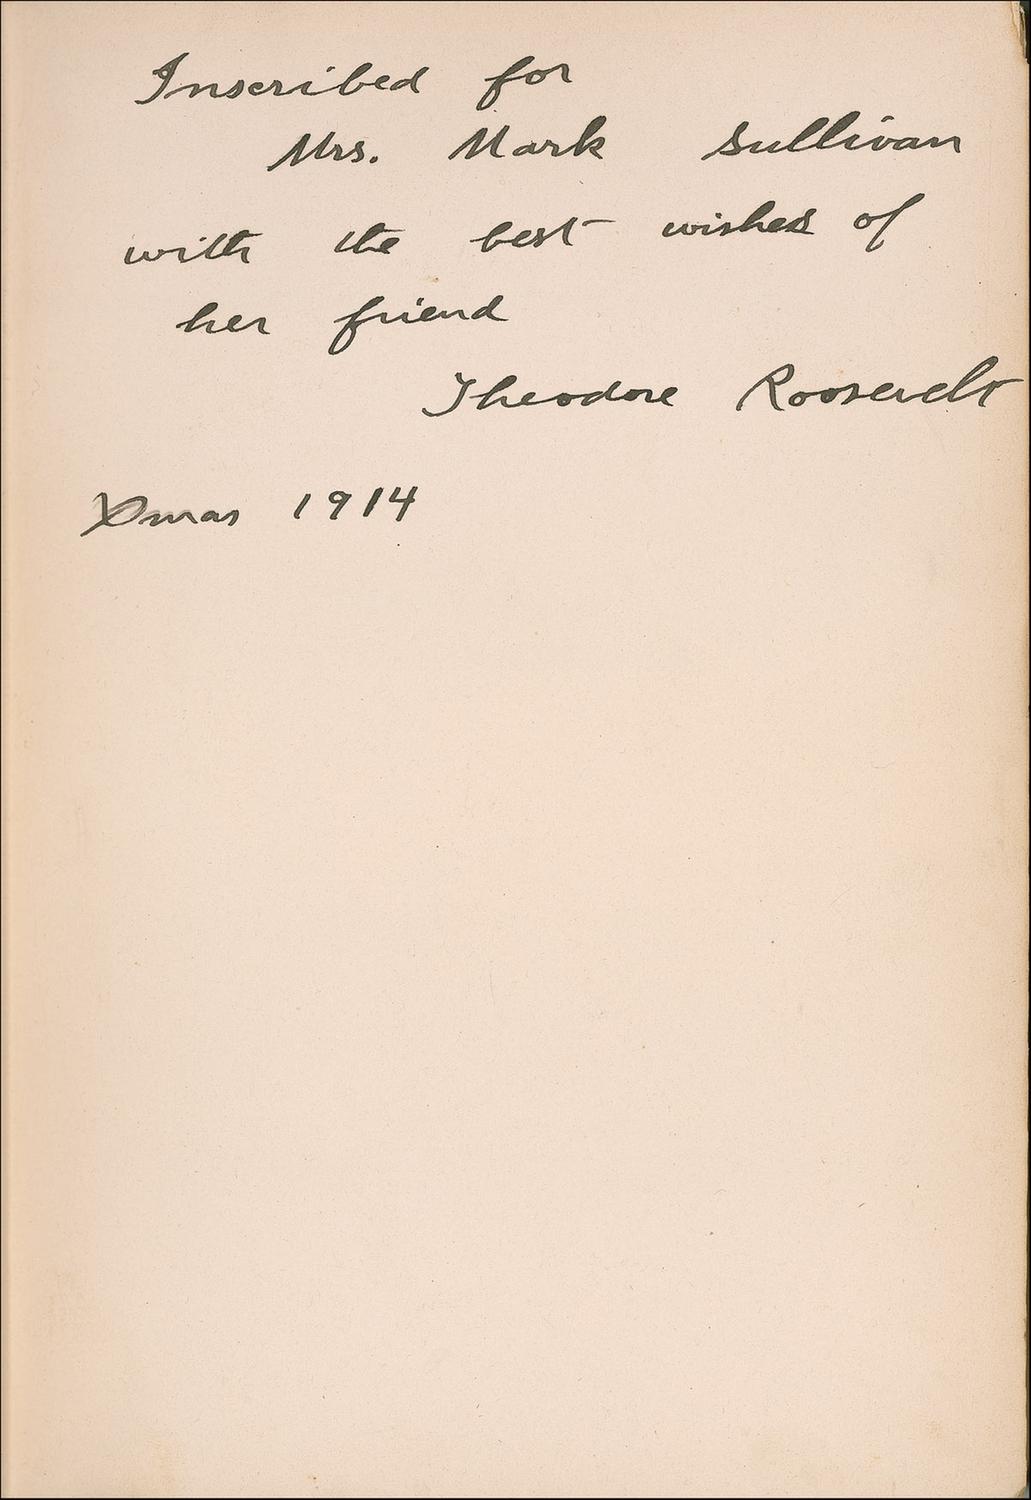 Inscribed for
Mrs. Mark Sullivan
with the best wishes of
her friend
Theodore Roosevelt
Xmas 1914